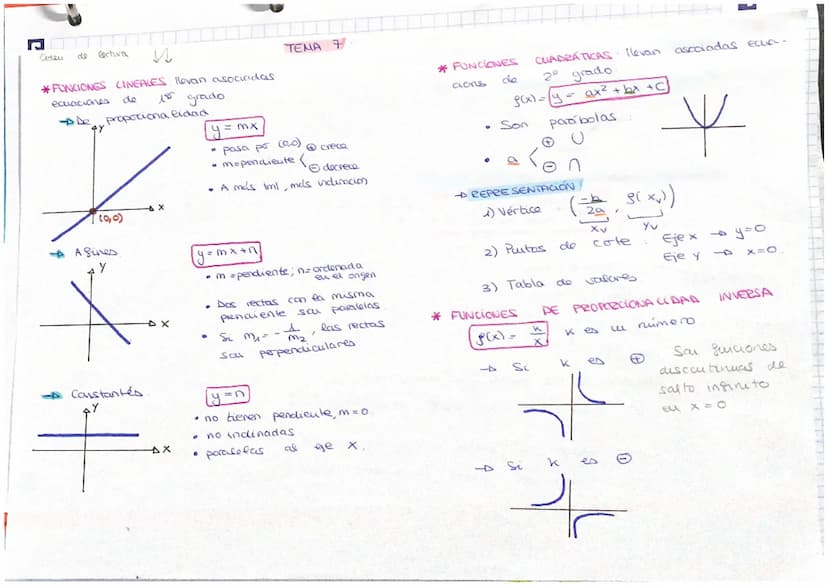 TEMA 7
* FUNCIONES LINEALES llevan asociadas
ecuaciones de 1er grado
→ De proporcionalidad
y
x
(0,0)
y = mx
• pasa por (0,0)
• m=pendiente < ⊕ crece
⊖ decrece
• A más |m|, más inclinación
→ Afines
y
x
y = mx+n
• m = pendiente; n=ordenada
en el origen
• Dos rectas con la misma
pendiente son paralelas
• Si m1 = - 1/m2, las rectas
son perpendiculares
→ Constantes
y
x
y = n
• no tienen pendiente, m=0
• no inclinadas
• paralelas al eje x.
* FUNCIONES CUADRÁTICAS llevan asociadas ecua-
cions de 2º grado
f(x) = y = ax² + bx + c
• Son parábolas
• a < ⊕ ∪
⊖ ∩
→ REPRESENTACIÓN
1) Vértice (-b/2a, f(xv))
xv yv
2) Puntos de corte: Eje x → y=0
Eje y → x=0.
3) Tabla de valores
* FUNCIONES DE PROPORCIONALIDAD INVERSA
f(x) = k/x k es un número
→ Si k es ⊕
Son funciones
discontinuas de
salto infinito
en x=0
→ Si k es ⊖